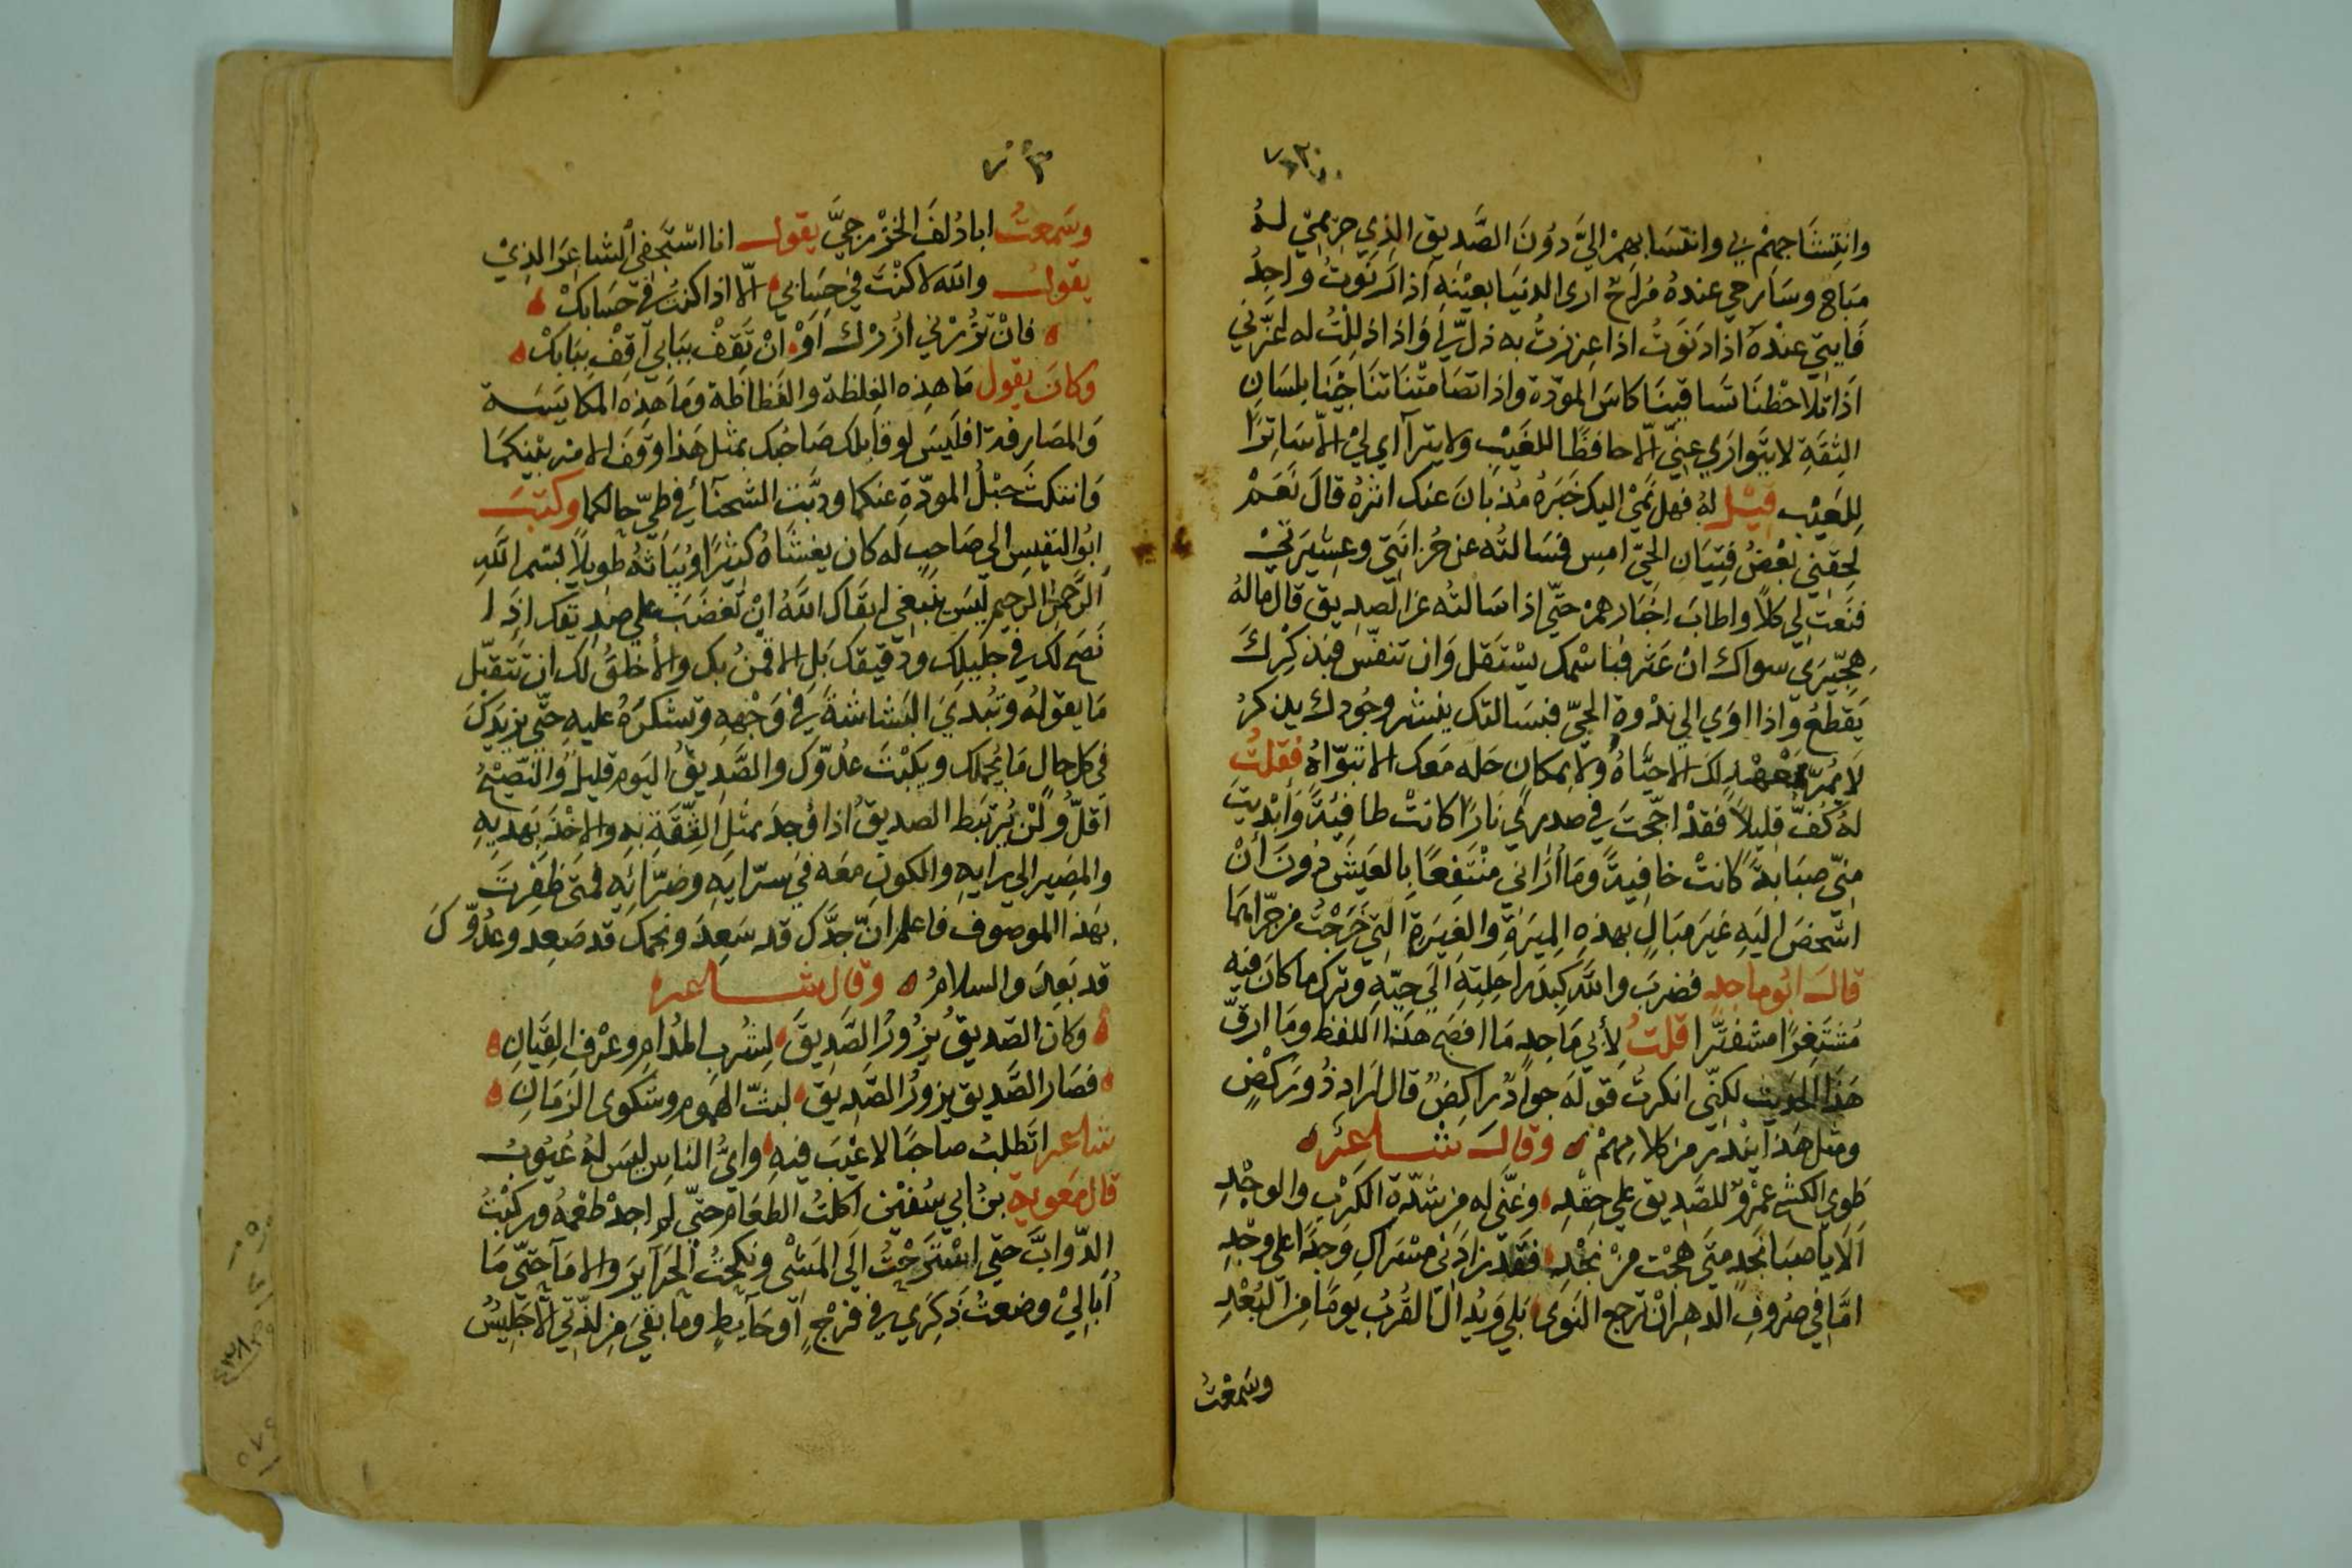 وانتشاجهم بي وانتسابهم اليّ دون الصَّديق الذي حريمي له
مباح وسارحي عنده مراح ارى الدنيا بعينه اذا رنوت واجد
فايتي عنده اذا دنوت اذا عززت به ذلّ لي واذا ذللت له اعزّني
اذا تلاحظنا تساقينا كاس المودّة واذا تصامتنا تناجينا بلسان
الثقة لا يتوارى عنّي الّا حافظًا للغيب ولا يتراآى لي الّا ساترًا
للعيب قيل له فهل نمي اليك خبره مذ بان عنك اثره قال نعم
لحقني بعض فتيان الحيّ امس فسالته عن حزانتي وعشيرتي
فنعت لي كلاً واطاب اخبارهم حتّى اذا سالته عن الصديق قال ماله
هجّيرى سواك ان عثر فباسمك يستقل وان تنفّس فبذكرك
يقطع واذا اوى الى ندوة الحيّ فبسالتك ينشر وجودك يذكر
لا يمرّ بعهد لك الا حيّاه ولا بمكان حله معك الا تبوّاه فقلت
له كفّ قليلاً فقد اجّجت في صدري نارًا كانت طافئة وأبديت
منّي صبابة كانت خافية وما أراني منتفعًا بالعيش دون أن
اشخص اليه غير مبال بهذه الميرة والغيرة التي خرجت من جرّاهما
قال ابو ماجد فضرب والله كبد راحلته الى حيّه وترك ما كان فيه
مشتغرًا مشفترًا قلت لأبي ماجد ما افصح هذا اللفظ وما ارقّ
هذا الحديث لكنّي انكرت قوله جوادٌ راكض قال اراد ذو ركض
ومثل هذا يندر من كلامهم ه وقال شاعر ه
طوى الكشح عمرٌو للصديق على حقد ه وغنّى له من شدّة الكرب والوجد
الا يا صبا نجد متى هجت من نجد ه فقد زادني مسراك وجدًا على وجد
امّا في صروف الدهر ان ترجع النوى ه بلى ويدال القرب يومًا من البُعد
وسمعت
وسمعت ابا دُلف الخزرجيّ يقول انا استجفي الشاعر الذي
يقول والله لا كنت في حسابي ه الّا اذا كنت في حسابك ه
ه فان تزرني ازرك او ه ان تقف ببابي اقف ببابك ه
وكان يقول ما هذه الغلظة والفظاظة وما هذه المكايسة
والمصارفة افليس لو قابلك صاحبك بمثل هذا وقف الامر بينكما
وانتكث حبل المودّة عنكما ودبّت الشحناء في طيّ حالكما وكتب
ابو النفيس الى صاحب له كان يغشاه كثيرًا ويباثه طويلاً بسم الله
الرحمن الرحيم ليس ينبغي ابقاك الله ان تغضب على صديقك اذا
نصح لك في جليلك ودقيقك بل الاقمن بك والأخلق لك ان تتقبّل
ما يقوله وتبدي البشاشة في وجهه وتشكره عليه حتّى يزيدك
في كل حال ما يجملك ويكبت عدوّك والصديق اليوم قليل والنصيح
اقلّ ولن يرتبط الصديق اذا وجد بمثل الثقة به والاخذ بهديه
والمصير الى رايه والكون معه في سرّايه وضرّائه فمتى ظفرت
بهذا الموصوف فاعلم انّ جدّك قد سعد ونجمك قد صعد وعدوّك
قد بعد والسلام ه وقال شاعر ه
ه وكان الصديق يزور الصديق ه لشرب المدام وعزف القيان ه
ه فصار الصديق يزور الصديق ه لبثّ الهموم وشكوى الزمان ه
شاعر اتطلب صاحبًا لا عيب فيه ه وايّ الناس ليس له عيوب
قال معوية بن ابي سفين اكلت الطعام حتّى لم اجد طعمه وركبت
الدوابّ حتى استرحت الى المشي ونكحت الحرآير والامآ حتّى ما
أبالي وضعت ذكري في فرج او حآيط وما بقي من لذّتي الّا جليس